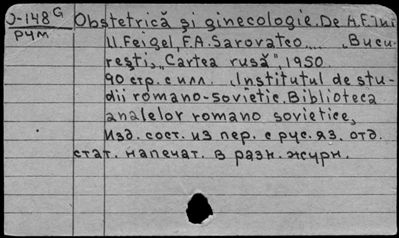 J-148 G
рум
Obstetrică și ginecologie. De A.F.
I.I. Feigel, F.A. Sarovatco.... Bucu-
rești, „Cartea rusă”, 1950.
90 стр. с илл. (Institutul de stu-
dii romano-sovietic. Biblioteca
analelor romano sovietice,
Изд. сост. из пер. с рус. яз. отд.
стат. напечат. в разн. журн.